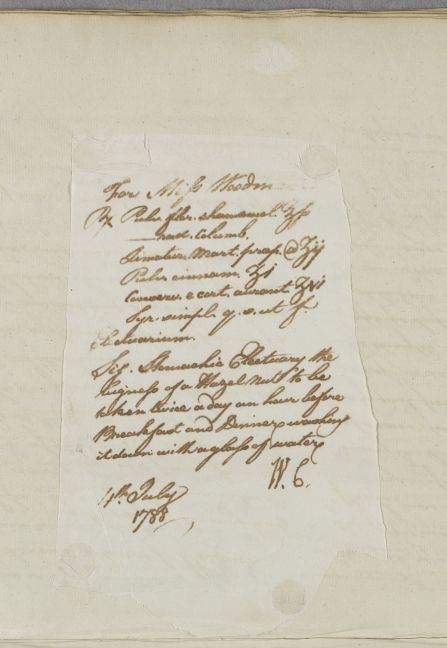 For Miss Woodm
Rx Pulv. flor. chamomel. ℥ſs
— rad. Columb.
Limatur. Mart. prep. @ ʒij
Pulv. cinnam. ʒi
Conserv. e cort. aurant. ℥vi
Syr. simpl. q. s. ut f.
Electuarium.
Sig. Stomachic Electuary the
bigness of a Hazel nutt to be
taken twice a day an hour before
Breakfast and Dinner washing
it down with a glass of water
W. C.
4th July
1788